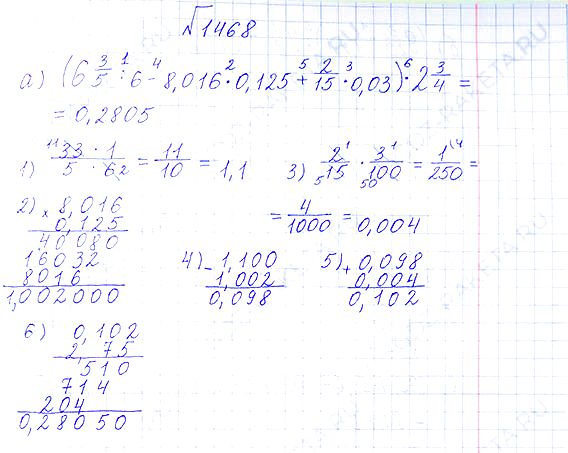 √1468
а) (6 3/5 : 6 - 8,016 · 0,125 + 2/15 · 0,03) · 2 3/4 =
1 4 2 5 3 6
= 0,2805
1) 33 · 1 / 5 · 6 2 = 11/10 = 1,1
11
3) 2 1 / 5 15 · 3 1 / 50 100 = 1 (4 / 250 =
= 4/1000 = 0,004
2) × 8,016
0,125
40080
16032
8016
1,002000
4) - 1,100
1,002
0,098
5) + 0,098
0,004
0,102
6) 0,102
2,75
510
714
204
0,28050